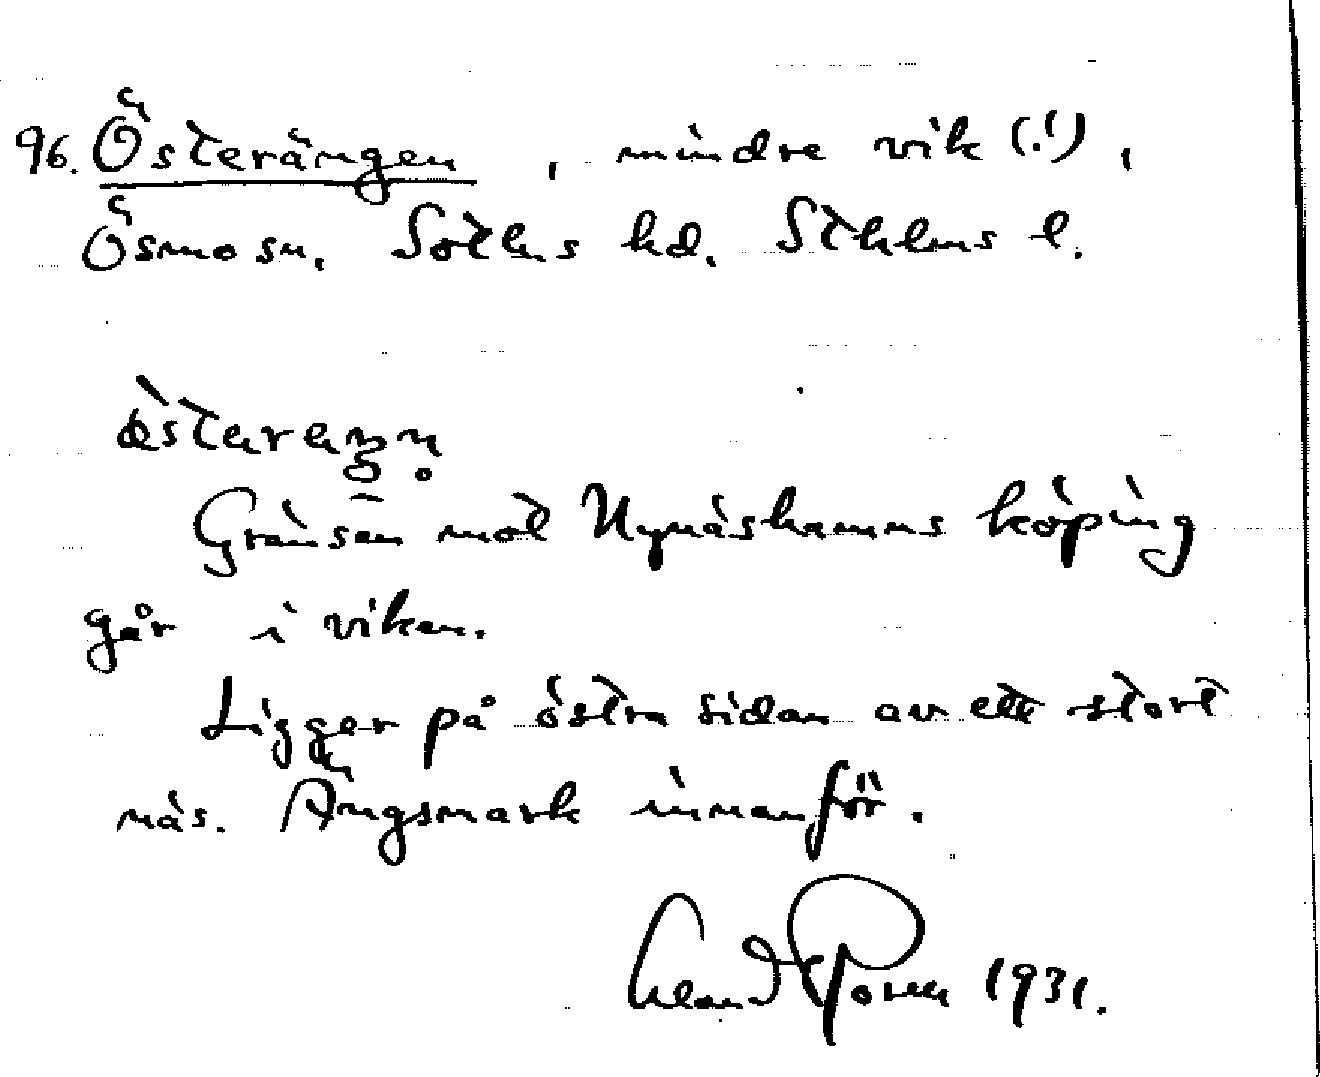 96. Österängen, mindre vik (!),
Ösmo sn. Sothns hd. Sthlms l.
Gränsen mot Nynäshamns köping
går i viken.
Ligger på östra sidan av ett stort
näs. Ängsmark innanför.
1931.